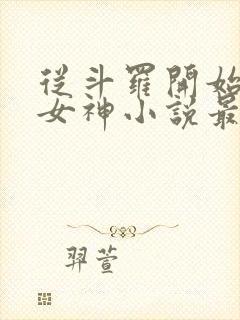 從斗羅開始
女神小説最
羿萱